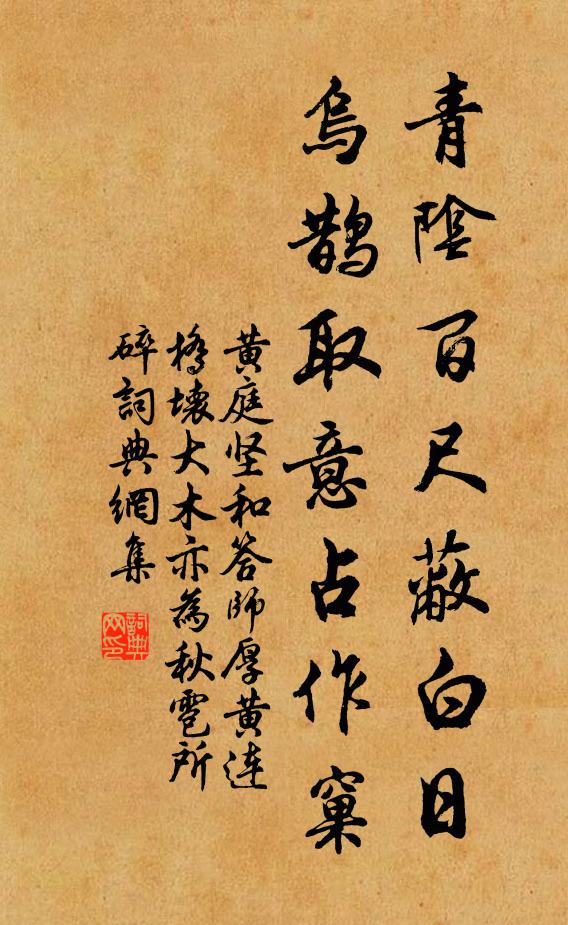 青陰百尺蔽白日
烏鵲取意占作窠
黄庭坚和答師厚黄连
橋壞大木亦為秋雹所
碎詞典網集
詞典
网印